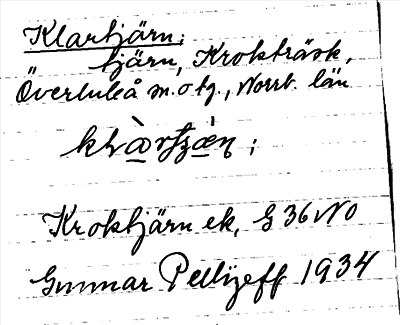 Klartjärn;
tjärn, Krokträsk,
Överluleå m. o tg., Norrb. län
Kroktjärn ek, G 36 NO
Gunnar Pellijeff 1934